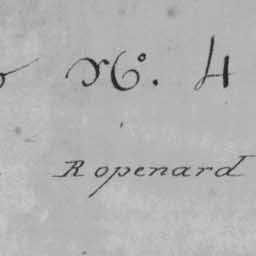 No. 4
Ropenard